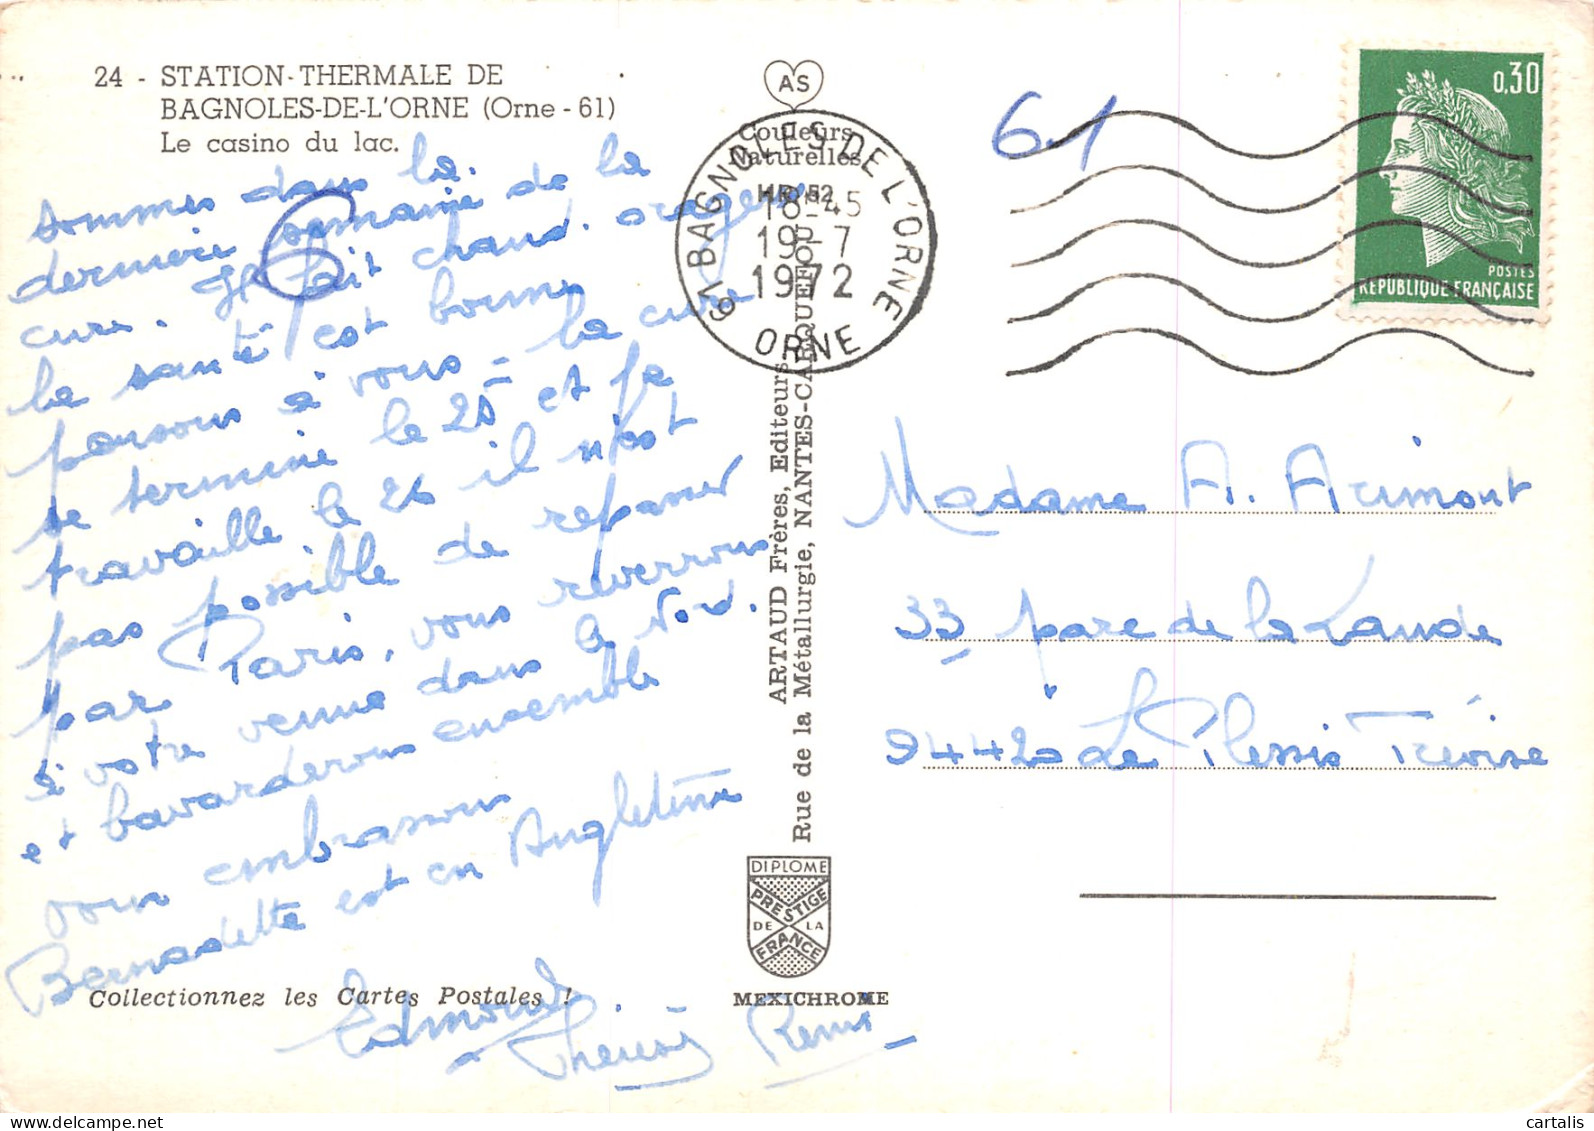 24 - STATION-THERMALE DE
BAGNOLES-DE-L'ORNE (Orne - 61)
Le casino du lac.
sommes dans la
dernière semaine de la
cure. Il fait chaud. orageux
la santé est bonne
pensons à vous - la cure
se termine le 25 et je
travaille le 26 il n'est
pas possible de repasser
par Paris, vous reverrons
à votre venue dans le Nord.
et bavarderons ensemble
vous embrassons
Bernadette est en Angleterre
Edmond
Thérèse Remi
Collectionnez les Cartes Postales !
AS
Couleurs
Naturelles
61 BAGNOLES DE L'ORNE
18-45
19-7
1972
ORNE
ARTAUD Frères, Editeurs
Rue de la Métallurgie, NANTES-CARQUEFOU
DIPLOME
PRESTIGE
DE LA
FRANCE
MEXICHROME
61
0,30
POSTES
REPUBLIQUE FRANÇAISE
Madame A. Arimont
33 parc de la Lande
94420 Le Plessis Trévise
cartalis